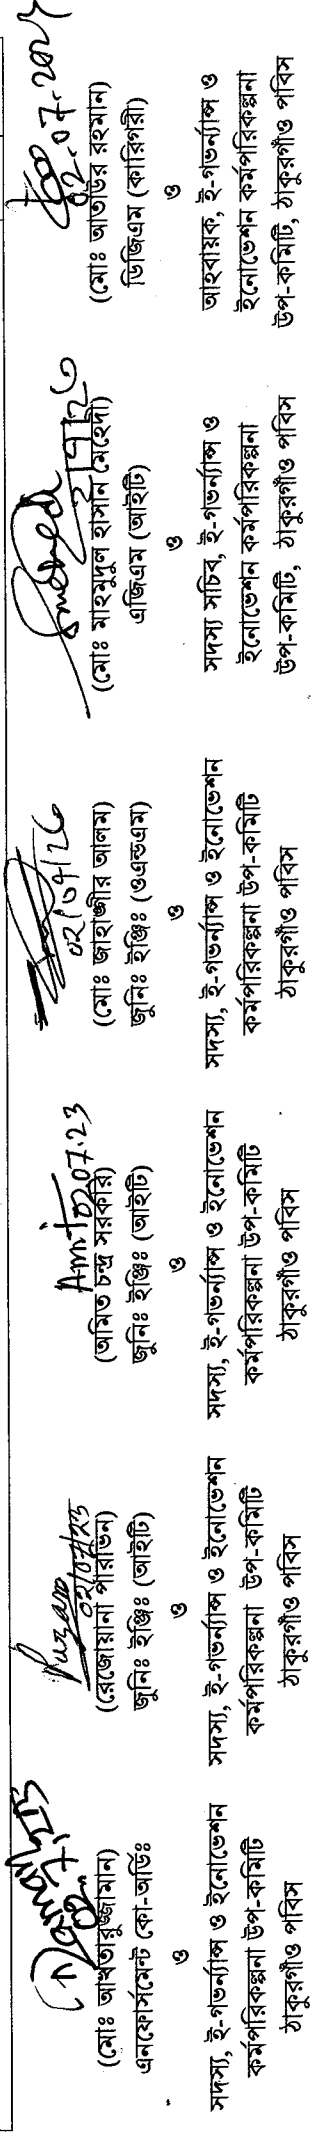 02.07.23
(মোঃ আখতারুজ্জামান)
এনফোর্সমেন্ট কো-অর্ডিঃ
ও
সদস্য, ই-গভর্ন্যান্স ও ইনোভেশন
কর্মপরিকল্পনা উপ-কমিটি
ঠাকুরগাঁও পবিস
(রেজোয়ানা পারভিন)
জুনিঃ ইঞ্জিঃ (আইটি)
ও
সদস্য, ই-গভর্ন্যান্স ও ইনোভেশন
কর্মপরিকল্পনা উপ-কমিটি
ঠাকুরগাঁও পবিস
Amit 02.07.23
(অমিত চন্দ্র সরকার)
জুনিঃ ইঞ্জিঃ (আইটি)
ও
সদস্য, ই-গভর্ন্যান্স ও ইনোভেশন
কর্মপরিকল্পনা উপ-কমিটি
ঠাকুরগাঁও পবিস
(মোঃ জাহাঙ্গীর আলম)
জুনিঃ ইঞ্জিঃ (ওএন্ডএম)
ও
সদস্য, ই-গভর্ন্যান্স ও ইনোভেশন
কর্মপরিকল্পনা উপ-কমিটি
ঠাকুরগাঁও পবিস
(মোঃ মাহমুদুল হাসান মেহেদী)
এজিএম (আইটি)
ও
সদস্য সচিব, ই-গভর্ন্যান্স ও
ইনোভেশন কর্মপরিকল্পনা
উপ-কমিটি, ঠাকুরগাঁও পবিস
(মোঃ আতাউর রহমান)
ডিজিএম (কারিগরী)
ও
আহবায়ক, ই-গভর্ন্যান্স ও
ইনোভেশন কর্মপরিকল্পনা
উপ-কমিটি, ঠাকুরগাঁও পবিস